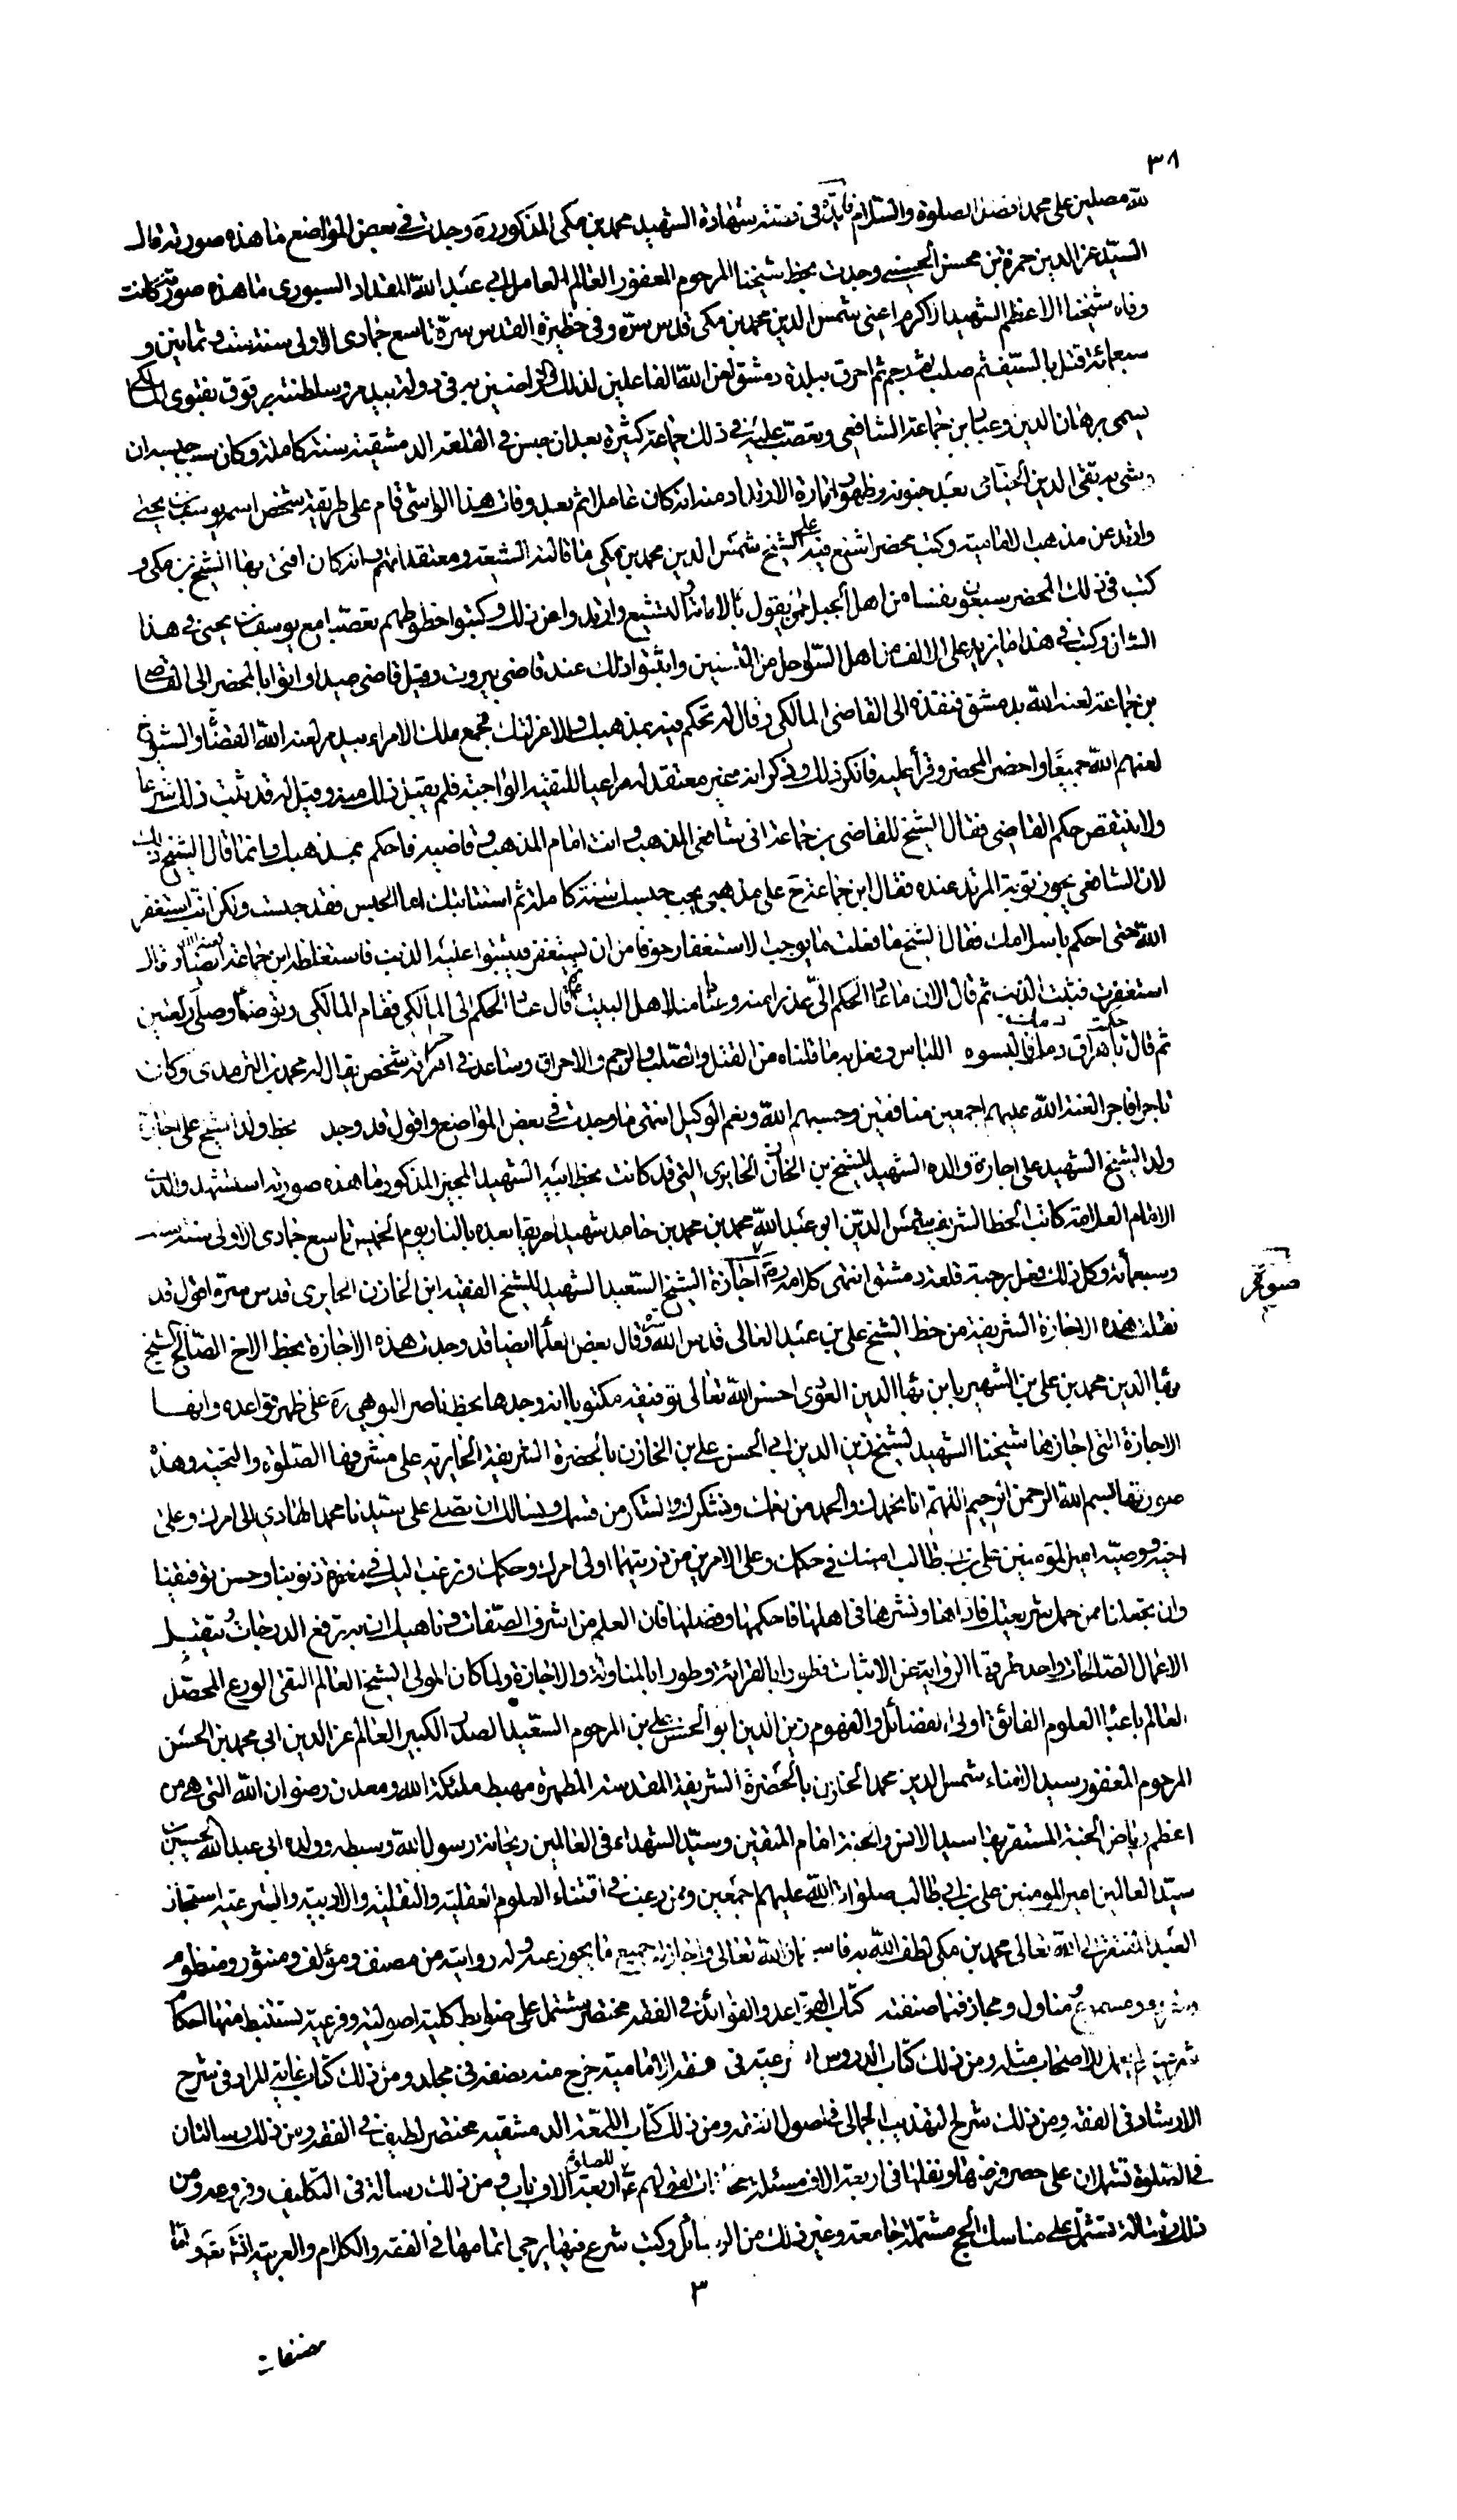 ٣٨
لله مصلين على محمد افضل الصلوة والسلام فايدة فى قصته شهادة الشهيد محمد بن مكى المذكور ره وجدت فى بعض المواضع ما هذه صورته قال
السيد عز الدين حمزة بن محسن الحسينى وجدت بخط شيخنا المرحوم المغفور العالم العامل ابى عبد الله المقداد السيورى ما هذه صورته كانت
وفاه شيخنا الاعظم الشهيد الاكرم اعنى شمس الدين محمد بن مكى قدس سره وفى حظيرة القدس سره تاسع جمادى الاولى سنة ست وثمانين و
سبعمائة قتل بالسيف ثم صلب ثم رجم ثم احرق ببلدة دمشق لعن الله الفاعلين لذلك والراضين به فى دولة بيدمر وسلطنته برقوق بفتوى المالكى
يسمى برهان الدين وعباد بن جماعة الشافعى وتعصب عليه فى ذلك جماعة كثيرة بعد ان حبس فى القلعة الدمشقية سنة كاملة وكان سبب حبسه ان
وشى به تقى الدين الجبلى بعد جنونه وظهور امارة الارتداد منه انه كان عاملا ثم بعد وفات هذا الواشى قام على طريقته شخص اسمه يوسف بن يحيى
وارتد عن مذهب الامامية وكتب محضرا شنع فيه على الشيخ شمس الدين محمد بن مكى ما قالته الشيعة ومعتقداتهم وانه كان افتى بها الشيخ بن مكى و
كتب فى ذلك المحضر سبعون نفسا من اهل الجبل ممن يقول بالامامة والتشيع وارتدوا عن ذلك وكتبوا خطوطهم تعصبا مع يوسف بن يحيى فى هذا
الشان وكتب فى هذا ما يزيد على الالف من اهل السواحل من المتسنين واثبتوا ذلك عند قاضى بيروت وقيل قاضى صيدا واتوا بالمحضر الى القاضى
بن جماعة لعنه الله بدمشق فنفذه الى القاضى المالكى وقال له تحكم فيه بمذهبك والا عزلتك فجمع ملك الامراء بيدمر لعنه الله القضاة والشيوخ
لعنهم الله جميعا واحضر المحضر وقرأ عليه فانكر ذلك وذكر انه غير معتقد له مراعيا للتقية الواجبة فلم يقبل ذلك منه وقيل له قد ثبت ذلك شرعا
ولا ينتقض حكم القاضى فقال الشيخ للقاضى بن جماعة انى شافعى المذهب وانت امام المذهب وقاضيه فاحكم بمذهبك وانما قال الشيخ ذلك
لان الشافعى يجوز توبة المرتد عنده فقال ابن جماعة ح على مذهبى يجب حبسك سنة كاملة ثم استتابتك اما الحبس فقد حبست ولكن انت استغفر
الله حتى احكم باسلامك فقال الشيخ ما فعلت ما يوجب الاستغفار خوفا من ان يستغفر فيثبتوا عليه الذنب فاستغلظه ابن جماعة ايضا وقال
استغفرت فثبت الذنب ثم قال الان ما عاد الحكم الى غدرا منه وعنادا منه لاهل البيت ع ثم قال عاد الحكم الى المالكى فقام المالكى وتوضأ وصلى ركعتين
ثم قال حكمت باهراق دمك فالبسوه اللباس وفعل به ما قلناه من القتل والصلب والرجم والاحراق وساعد فى احراقه شخص يقال له محمد بن الترمذى وكان
تاجرا فاجرا لعنة الله عليهم اجمعين منافقين وحسبهم الله ونعم الوكيل انتهى ما وجدت فى بعض المواضع واقول قد وجد بخط ولد الشيخ على اجازة
ولد الشيخ الشهيد على اجازة والده الشهيد للشيخ بن الخازن الحايرى التى قد كانت بخط ابيه الشهيد المجيز المذكور ما هذه صورته استشهد والدى
الامام العلامة كاتب الخط الشريف شمس الدين ابو عبد الله محمد بن محمد بن حامد شهيدا حريقا بعده بالنار يوم الخميس تاسع جمادى الاولى سنة ست
وسبعمائة وكل ذلك فعل برحبة قلعة دمشق انتهى كلامه ره اجازة الشيخ السعيد الشهيد للشيخ الفقيه ابن الخازن الحايرى قدس سره اقول قد
صورة
نقلت هذه الاجازة الشريفة من خط الشيخ على بن عبد العالى قدس الله سره وقال بعض العلما ايضا قد وجدت هذه الاجازة بخط الاخ الصالح الشيخ
بهاء الدين محمد بن على بن الشهير بابن بهاء الدين العودى احسن الله تعالى توفيقه مكتوبا انه وجدها بخط ناصر البويهى ره على ظهر قواعده وانها
الاجازة التى اجازها شيخنا الشهيد للشيخ زين الدين ابى الحسن على بن الخازن بالحضرة الشريفة الحايرية على مشرفها الصلوة والتحية وهذه
صورتها بسم الله الرحمن الرحيم اللهم انا نحمدك والحمد من نعمك ونشكرك والشكر من قسمك ونسالك ان تصلى على سيدنا محمد الهادى الى امرك وعلى
اخيه ووصيه امير المؤمنين على بن ابى طالب امينك فى حكمك وعلى الامرين من ذريتهما اولى امرك وحكمك ونرغب اليك فى مغفرة ذنوبنا وحسن توفيقنا
وان تجعلنا ممن حمل شريعتك فاذاها ونشرها فى اهلها فاحكمها وفضلها فان العلم من اشرف الصفات وناهيك ان به ترفع الدرجات وتقبل
الاعمال الصالحات واحد طرقه الرواية عن الاثبات فطورا بالقرائة وطورا بالمناولة والاجازة ولما كان المولى الشيخ العالم التقى الورع المحصل
العالم باعباء العلوم الفائق اولى الفضائل والفهوم زين الدين ابو الحسن على بن المرحوم السعيد الصدر الكبير العالم عز الدين ابى محمد بن الحسن
المرحوم المغفور سيد الامناء شمس الدين محمد الخازن بالحضرة الشريفة المقدسة المطهرة مهبط ملئكة الله ومعدن رضوان الله التى هى من
اعظم رياض الجنة المستقر بها سيد الانس والجنة امام المتقين وسيد الشهداء فى العالمين ريحانة رسول الله وسبطه وولده ابى عبد الله الحسين بن
سيد العالمين امير المومنين على بن ابى طالب صلوات الله عليهم اجمعين وممن رغب فى اقتناء العلوم العقلية والنقلية والادبية والشرعية استجاز
العبد المفتقر الى الله تعالى محمد بن مكى لطف الله به فاستخار الله تعالى واجاز له جميع ما يجوز عنه وله روايته من مصنف ومؤلف ومنثور ومنظوم
ومقروء ومسموع ومناول ومجاز فمما صنفته كتاب القواعد والفوائد فى الفقه مختصر يشتمل على ضوابط كلية اصولية وفرعية تستنبط منها احكام
شرعية لم يعمل الاصحاب مثله ومن ذلك كتاب الدروس الشرعية فى فقه الامامية خرج منه نصفه فى مجلد ومن ذلك كتاب غاية المراد فى شرح
الارشاد فى الفقه ومن ذلك شرح التهذيب الجمالى فى اصول الفقه ومن ذلك كتاب اللمعة الدمشقية مختصر لطيف فى الفقه ومن ذلك رسالتان
فى الصلوة تشتملان على حصر فرضها ونفلها فى اربعة الاف مسئلة لقولهم ع للصلوة اربعة الاف باب ومن ذلك رسالة فى التكليف وفروعه ومن
ذلك رسالة تشتمل على مناسك الحج مشتملة جامعة وغير ذلك من الرسائل وكتب شرع فيها يرجى اتمامها فى الفقه والكلام والعربية انشاء تعه واما
٣
مصنفات